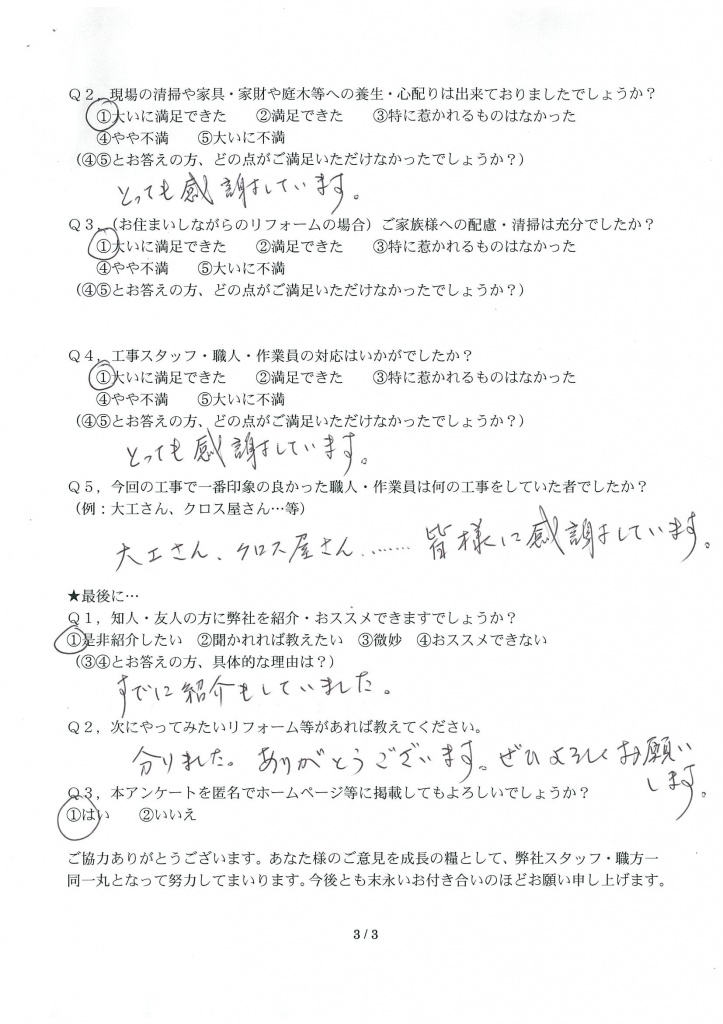 Q2，現場の清掃や家具・家財や庭木等への養生・心配りは出来ておりましたでしょうか？
①大いに満足できた　②満足できた　③特に惹かれるものはなかった
④やや不満　⑤大いに不満
（④⑤とお答えの方、どの点がご満足いただけなかったでしょうか？）
とっても感謝しています。
Q3，（お住まいしながらのリフォームの場合）ご家族様への配慮・清掃は充分でしたか？
①大いに満足できた　②満足できた　③特に惹かれるものはなかった
④やや不満　⑤大いに不満
（④⑤とお答えの方、どの点がご満足いただけなかったでしょうか？）
Q4，工事スタッフ・職人・作業員の対応はいかがでしたか？
①大いに満足できた　②満足できた　③特に惹かれるものはなかった
④やや不満　⑤大いに不満
（④⑤とお答えの方、どの点がご満足いただけなかったでしょうか？）
とっても感謝しています。
Q5，今回の工事で一番印象の良かった職人・作業員は何の工事をしていた者でしたか？
（例：大工さん、クロス屋さん…等）
大工さん、クロス屋さん……皆様に感謝しています。
★最後に…
Q1，知人・友人の方に弊社を紹介・おススメできますでしょうか？
①是非紹介したい　②聞かれれば教えたい　③微妙　④おススメできない
（③④とお答えの方、具体的な理由は？）
すでに紹介もしていました。
Q2，次にやってみたいリフォーム等があれば教えてください。
分りました。ありがとうございます。ぜひよろしくお願い
します。
Q3，本アンケートを匿名でホームページ等に掲載してもよろしいでしょうか？
①はい　②いいえ
ご協力ありがとうございます。あなた様のご意見を成長の糧として、弊社スタッフ・職方一
同一丸となって努力してまいります。今後とも末永いお付き合いのほどお願い申し上げます。
3 / 3